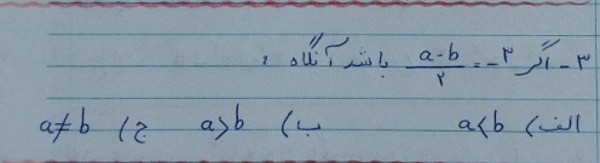 ۳- اگر (a-b)/۲ = -۳ باشد آنگاه :
الف) a<b ب) a>b ج) a≠b